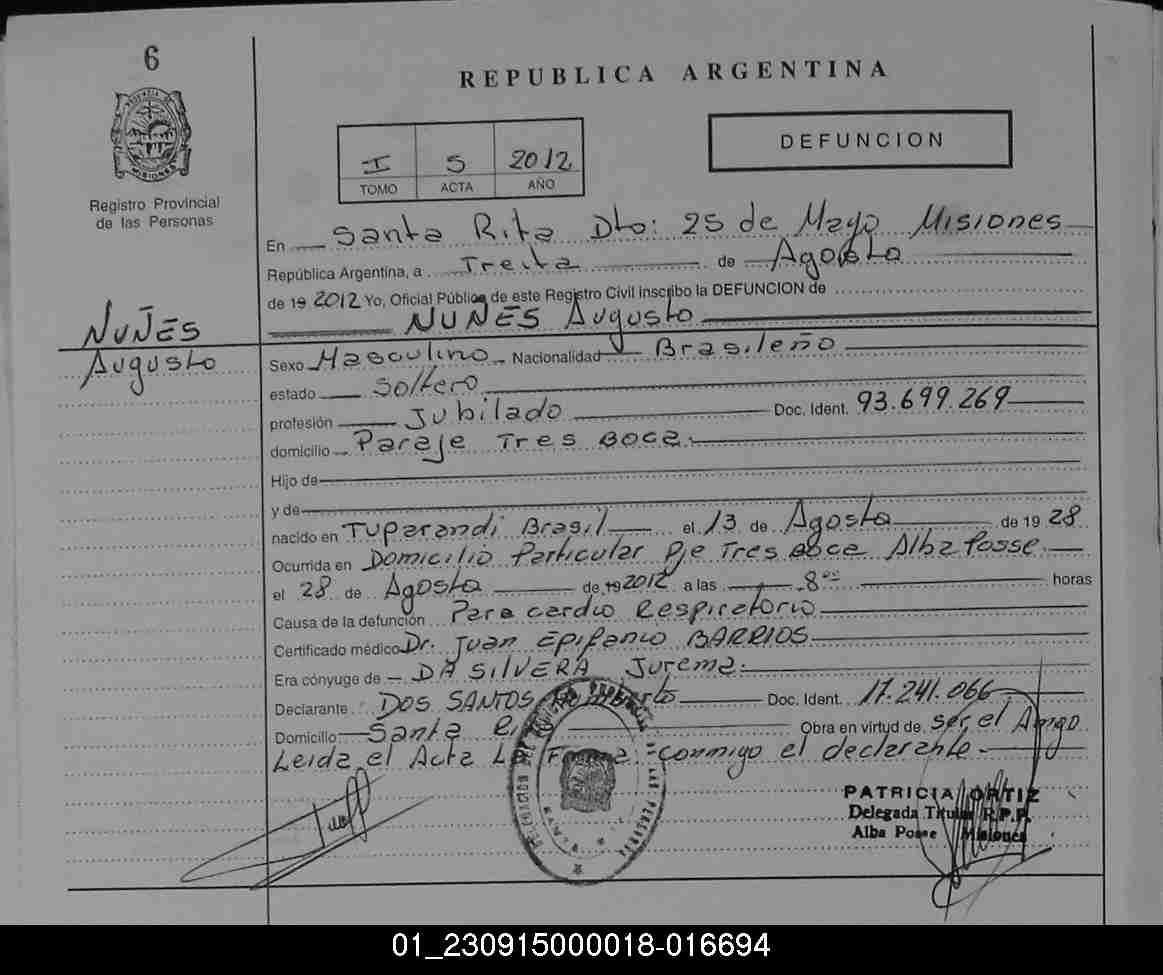 6
REPUBLICA ARGENTINA
DEFUNCION
I 5 2012
TOMO ACTA AÑO
Registro Provincial
de las Personas
En Santa Rita Dto: 25 de Mayo Misiones
República Argentina, a Treita de Agosto
de 19 2012 Yo, Oficial Público de este Registro Civil inscribo la DEFUNCION de
NUÑES Augusto
NUÑES
Augusto
Sexo Masculino Nacionalidad Brasileño
estado Soltero
profesión Jubilado Doc. Ident. 93.699.269
domicilio Paraje Tres Boca.
Hijo de
y de
nacido en Tuparandi Brasil el 13 de Agosto de 19 28
Ocurrida en Domicilio Particular Pje Tres Boca Alba Posse
el 28 de Agosto de 19 2012 a las 8 00 horas
Causa de la defunción Paro cardio Respiratorio
Certificado médico Dr. Juan Epifanio BARRIOS
Era cónyuge de DA SILVERA Jurema.
Declarante DOS SANTOS Doc. Ident. 17.241.066
Domicilio Santa Obra en virtud de ser el Amigo
Leida el Acta La Firma conmigo el declarante
PATRICIA ORTIZ
Delegada Titular R.P.P.
Alba Posse Misiones
01_230915000018-016694